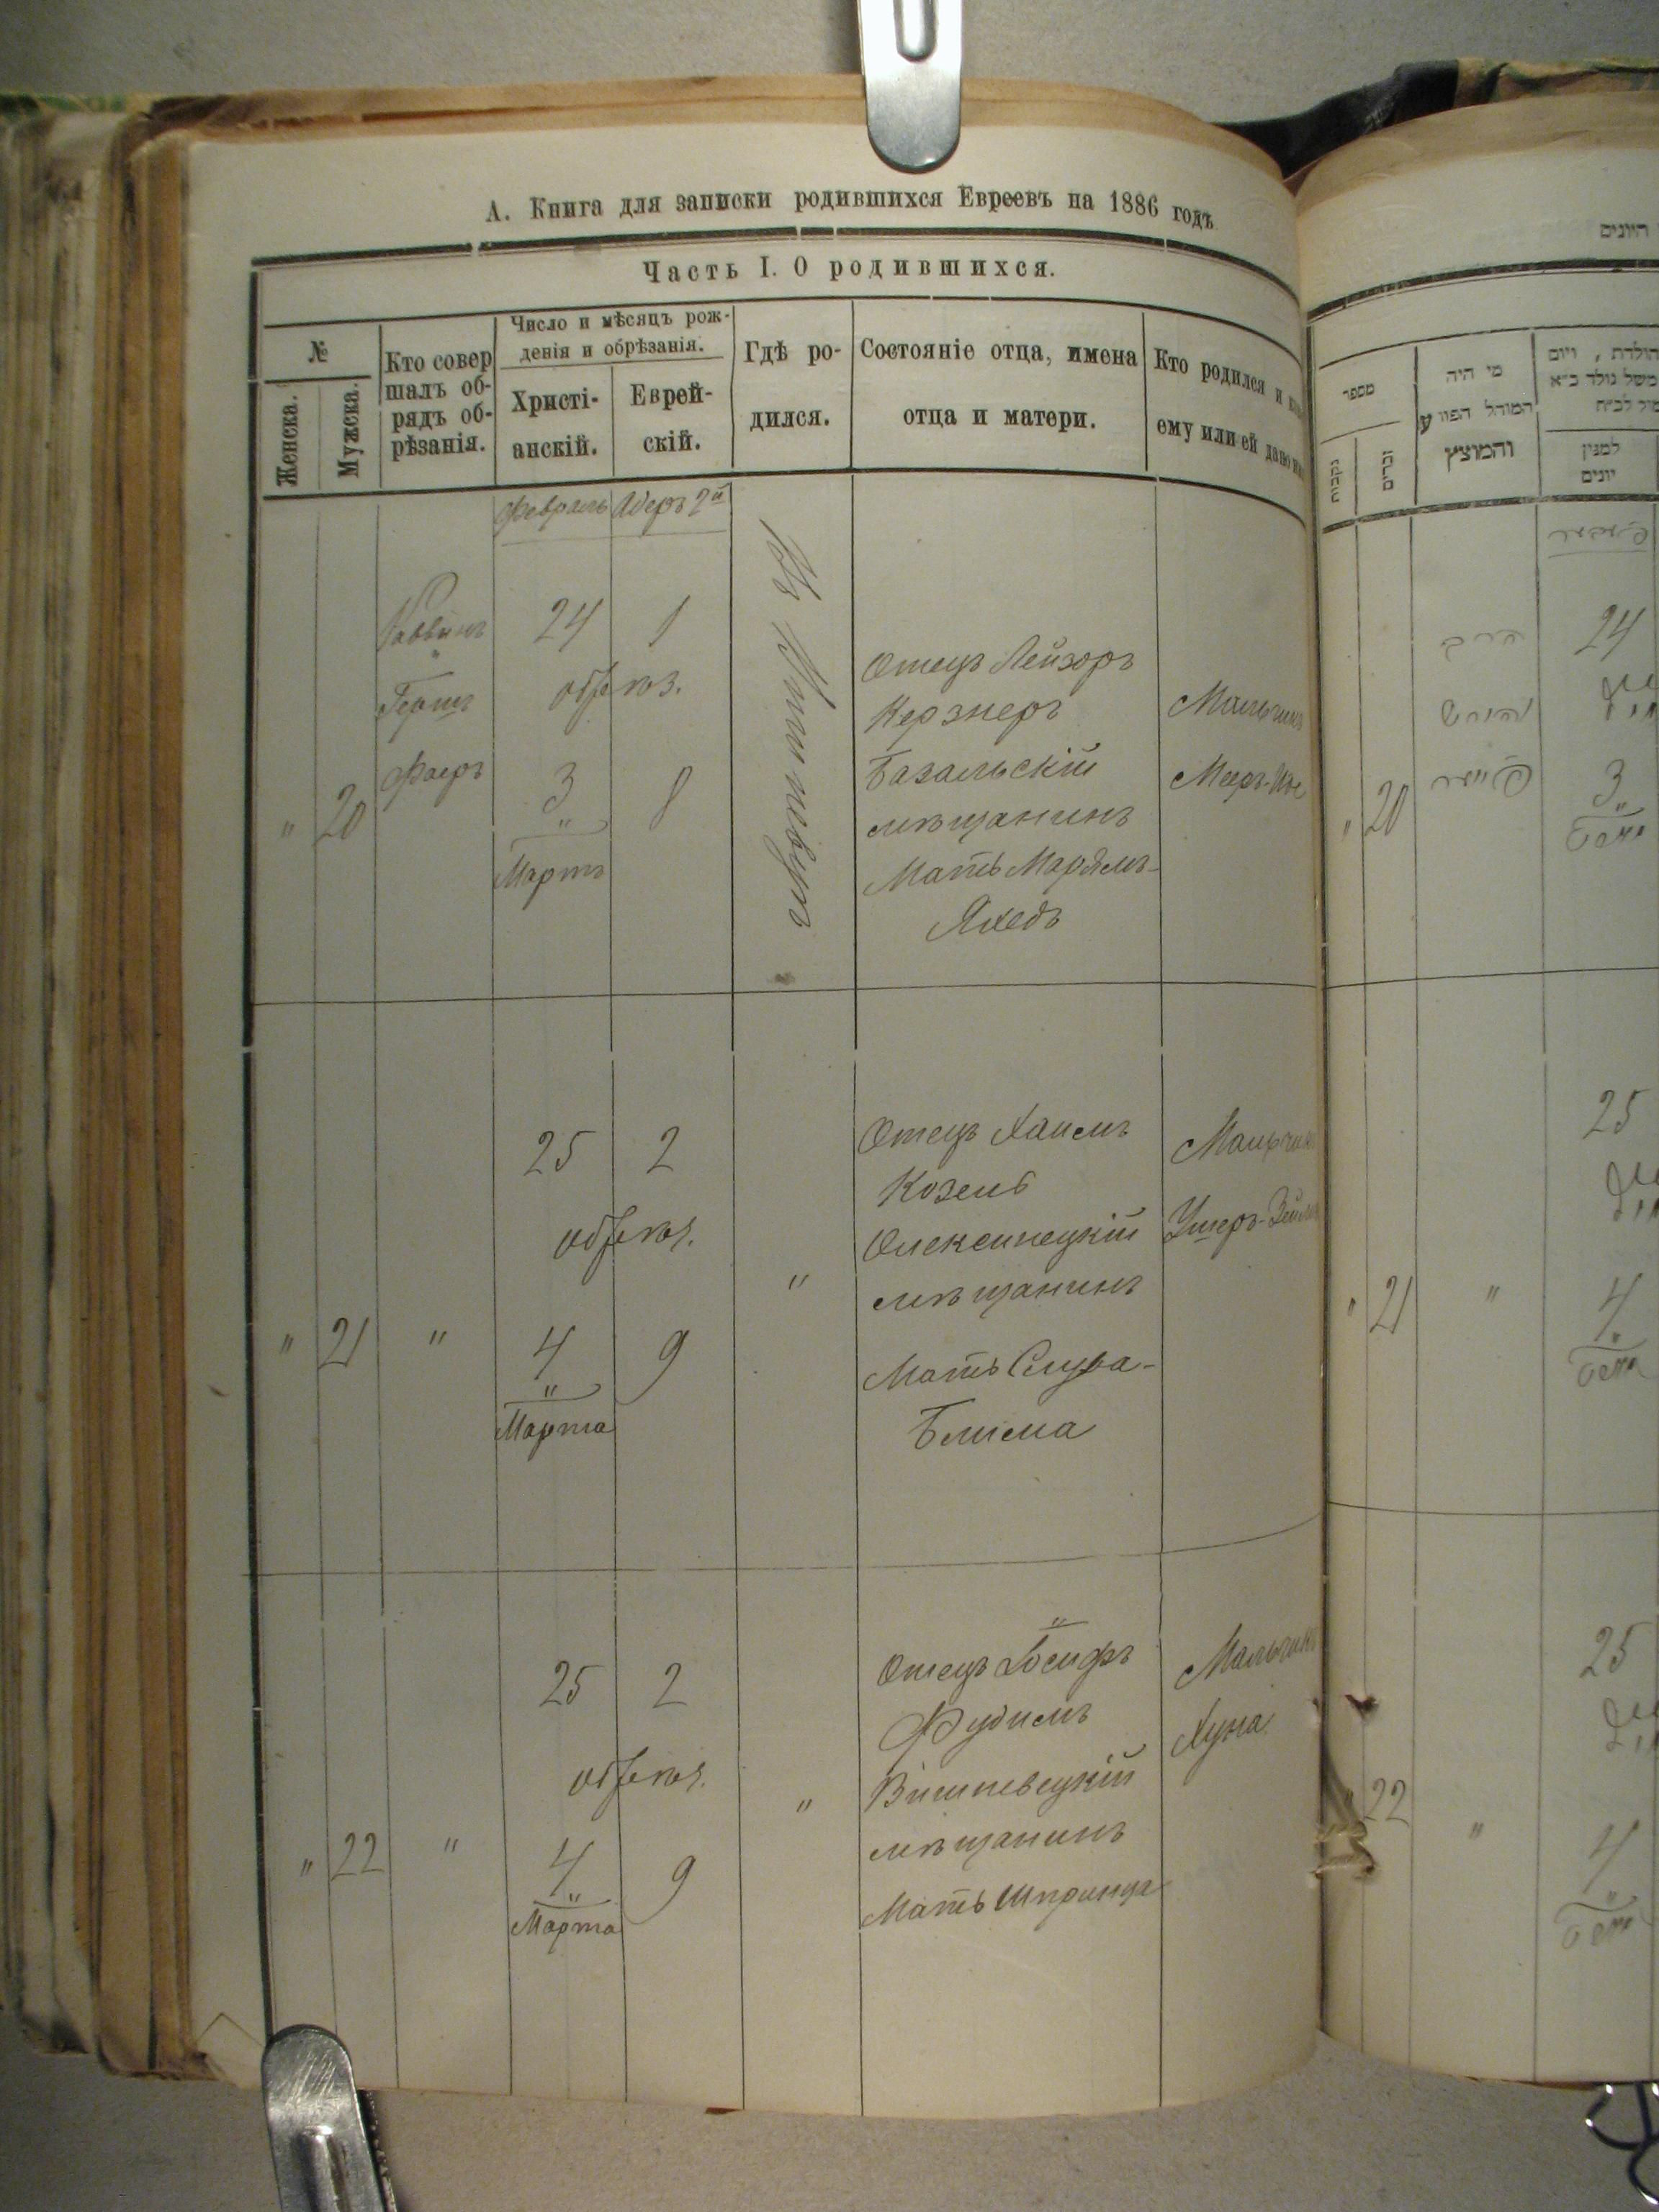 А. Книга для записки родившихся Евреевъ на 1886 годъ
Часть I. О родившихся.
№
Женска.
Мужска.
Кто совер
шалъ об-
рядъ об-
рѣзанія.
Число и мѣсяцъ рож-
денія и обрѣзанія.
Христі-
анскій.
Еврей-
скій.
Гдѣ ро-
дился.
Состояніе отца, имена
отца и матери.
Кто родился и
ему или ей дано
Февраль Адеръ 2й
" 20
Раввинъ
"
Гершъ
Фаеръ
24 1
обрѣз.
3 8
"
Мартъ
Отецъ Лейзоръ
Керзнеръ
Базальскій
мѣщанинъ
Мать Марямъ-
Яхедъ
Мальчикъ
" 21 "
25 2
обрѣз.
4 9
"
Марта
"
Отецъ Хаимъ
Козель
Олексинецкій
мѣщанинъ
Мать
Блима
Мальчикъ
" 22 "
25 2
обрѣз.
4 9
"
Марта
"
Отецъ Іосифъ
Фудимъ
Вишневецкій
мѣщанинъ
Мать Шпринца
Мальчикъ
Хуна
מספר
נקבות
זכרים
מי היה
המוהל הפורע
והמוצץ
למנין
יונים
24
" 20
הרב
הירש
פייער
3
"
25
" 21 "
4
"
25
22 "
4
"